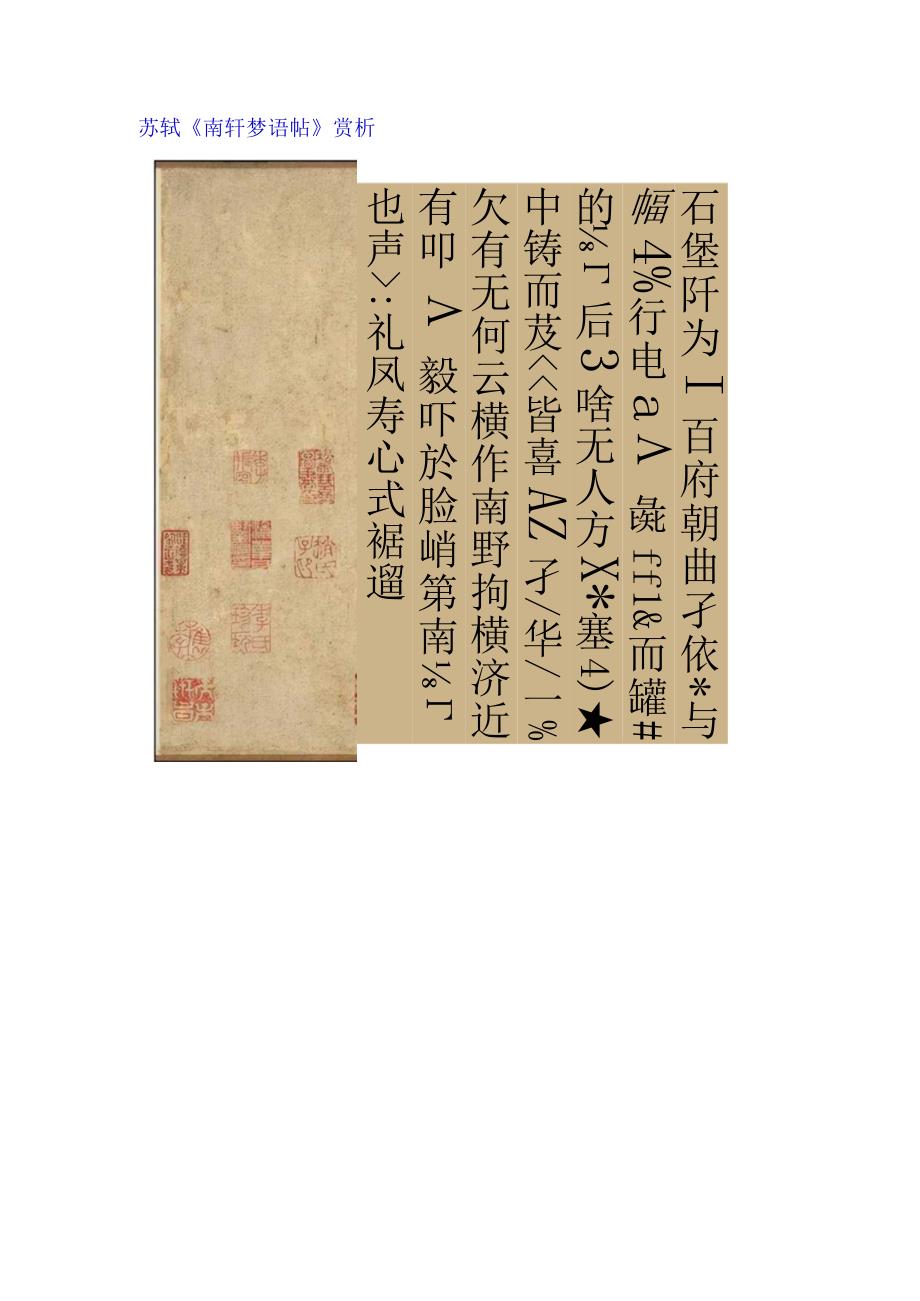 苏轼《南轩梦语帖》赏析
石堡阡为I百府朝曲孑依*与
幅4%行电aΛ彘ffl&而罐#
的⅛Γ后3啥无人方X*塞4)★
中铸而芨<<皆喜AZ孑/华/一%
欠有无何云横作南野拘横济近
有叩Λ毅吓於脸峭第南⅛Γ
也声>:礼凤寿心式裾遛